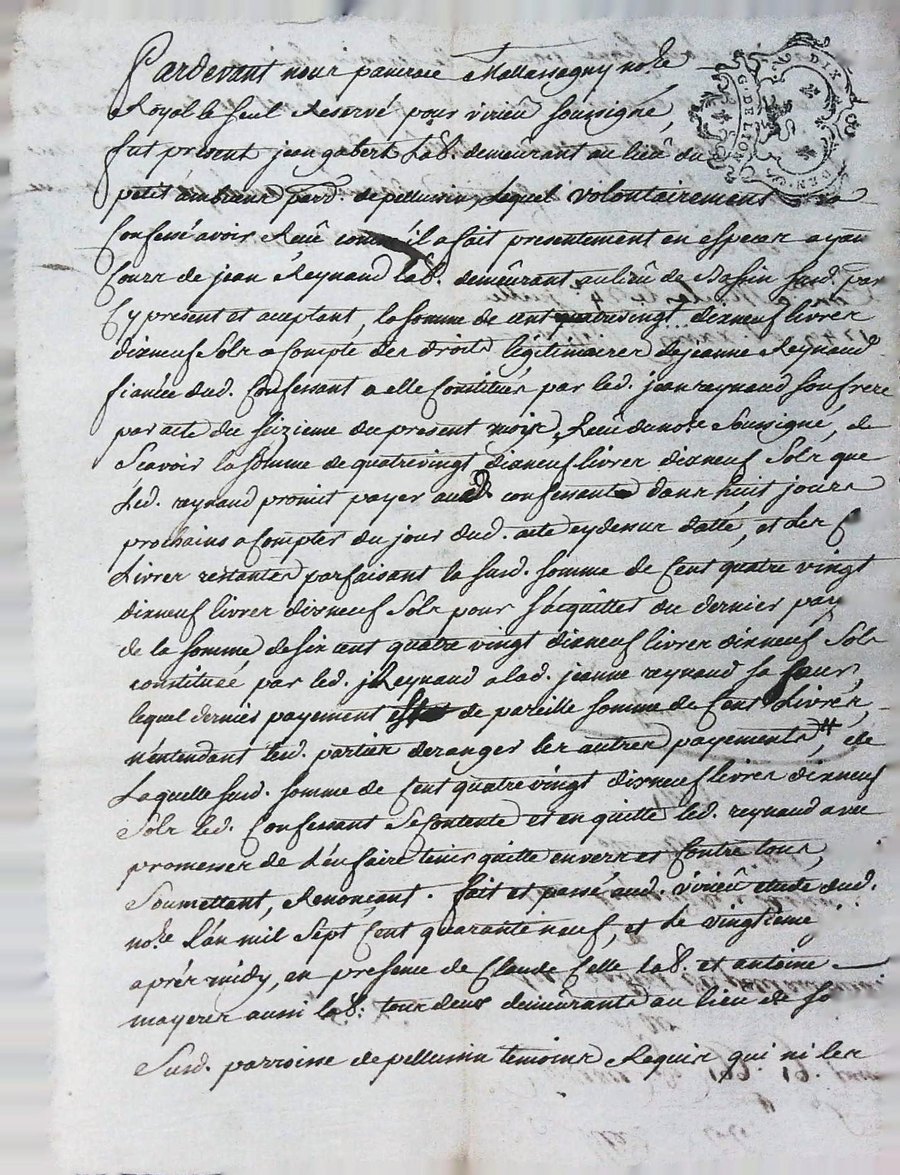 Pardevant nous pancrace Mallassagny no.re
Royal le seul Reservé pour virieu soussigné,
fut present jean gabert lab. demeurant au lieu du
petit ambrane parr. de pellussin, lequel volontairement
Confessé avoir Reçû comme il a fait presentement en especes ayant
Cours de jean Reynaud lab. demeurant au lieu de Bassin sud. parr.
Cy present et aceptant, la somme de cent quatre vingt dixneuf livres
dixneuf Sols a compte des droits legitimaires de jeanne Reynaud
fiancée dud. Confessant a elle Constitués par led. jean reynaud son frere
par acte du seizieme du present mois, Reçu du no.re Soussigné, de
Scavoir la somme de quatrevingt dixneuf livres dixneuf Sols que
Led. reynaud promit payer aud. confessent dans huit jours
prochains a Compter du jour dud. acte cydessus datté, et les C
Livres restentes parfaisant la susd. somme de Cent quatre vingt
dixneuf livres dixneuf Sols pour s'acquitter du dernier pay
de la somme de six cent quatre vingt dixneuf livres dixneuf Sols
constituée par led. j Reynaud a lad. jeanne reynaud sa sœur,
lequel dernier payement de pareille somme de Cent Livres,
n'entendant lesd. parties deranger les autres payements #, de
Laquelle susd. somme de Cent quatre vingt dixneuf livres dixneuf
Sols led. Confessant Se contente et en quitte led. reynaud avec
promesses de L'en faire tenir quitte envers et Contre tous,
Soumettant, Renoncant. fait et passé aud. virieu étude dud.
no.re L'an mil Sept Cent quarante neuf, et Le vingtieme
aprés midy, en presence de Claude Celle lab. et antoine
mayeres aussi lab. tous deux demeurants au lieu de
Susd. parroisse de pellussin temoins Requis qui ni les
G. DE LION
DIX DEN.